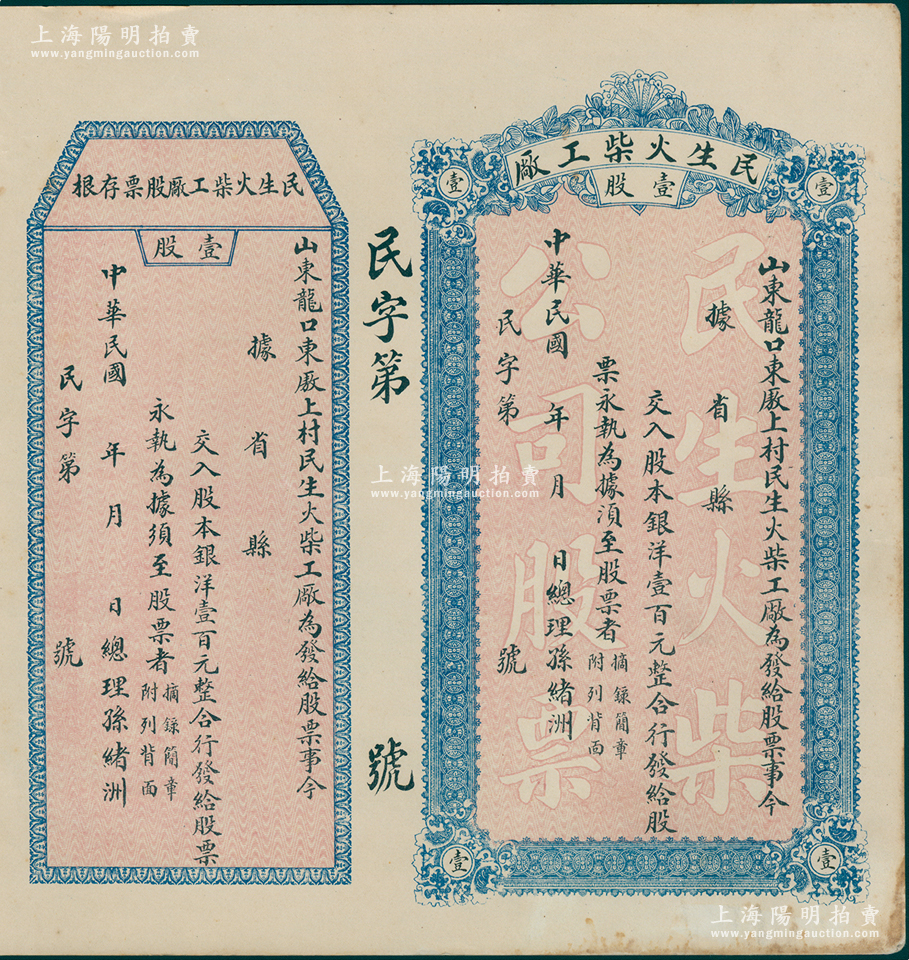 上海陽明拍賣
www.yangmingauction.com
民生火柴工廠
壹股
壹
壹
山東龍口東廒上村民生火柴工廠為發給股票事今
據 省 縣
交入股本銀洋壹百元整合行發給股
票永執為據須至股票者 摘錄簡章
附列背面
中華民國 年 月 日總理孫緒洲
民字第 號
民生火柴
公司股票
壹
壹
民字第 號
民生火柴工廠股票存根
壹股
山東龍口東廒上村民生火柴工廠為發給股票事今
據 省 縣
交入股本銀洋壹百元整合行發給股票
永執為據須至股票者 摘錄簡章
附列背面
中華民國 年 月 日總理孫緒洲
民字第 號
上海陽明拍賣
www.yangmingauction.com
上海陽明拍賣
www.yangmingauction.com